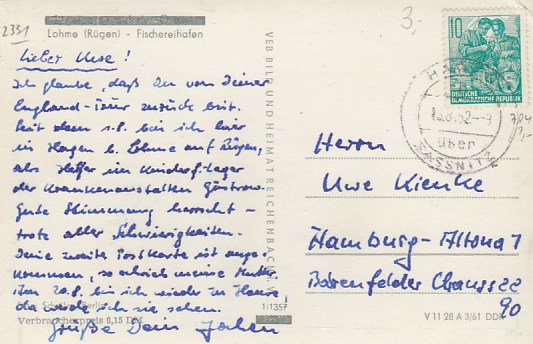 2331
3,-
Lohme (Rügen) - Fischereihafen
Lieber Uwe!
Ich glaube, daß Du von Deiner
England-Tour zurück bist.
Seit dem 1.8. bin ich hier
in Hagen b. Lohme auf Rügen,
als Helfer im Kinderf.-Lager
der Krankenanstalten Güstrow.
Gute Stimmung herrscht -
trotz aller Schwierigkeiten.
Deine zweite Postkarte ist ange-
kommen, so schrieb meine Mutter.
Am 20.8. bin ich wieder zu Hause
da werde ich sie sehen.
Grüße Dein Jochen
Berlin
Verbraucherpreis 0,15 DM
VEB BILD UND HEIMAT REICHENBACH I. V.
1/1357
10
DEUTSCHE
DEMOKRATISCHE REPUBLIK
über
SASSNITZ
Herrn
Uwe Kienke
Hamburg-Altona 1
Bärenfelder Chaussee
90
V 11 28 A 3/61 DDR